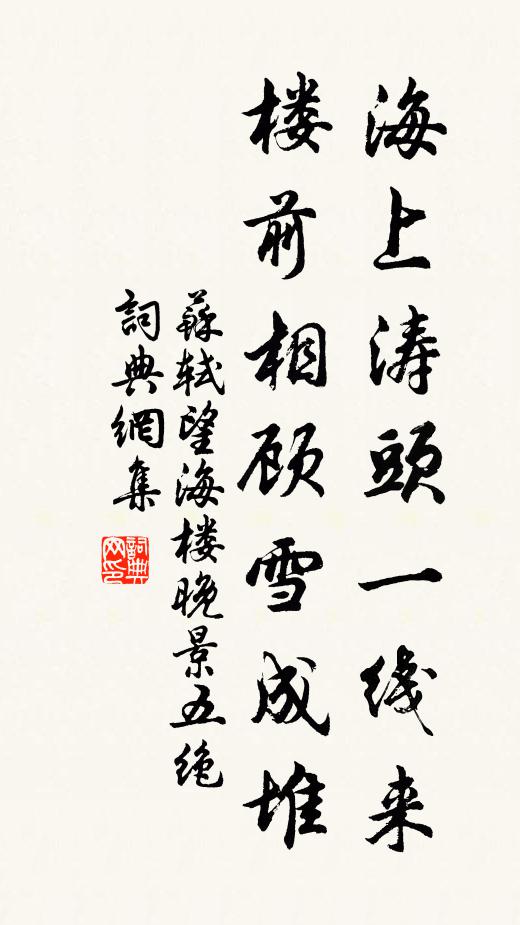 海上涛頭一线来
楼前相顾雪成堆
蘇軾望海楼晚景五绝
詞典網集
詞典网印